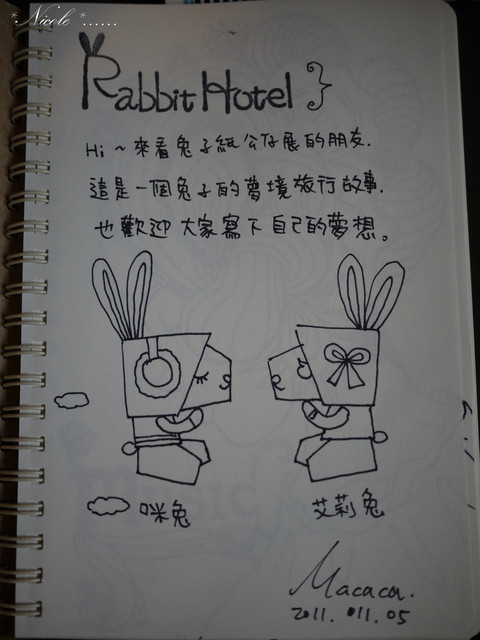 *Nicole*......
Rabbit Hotel }
Hi ~ 來看兔子紙公仔展的朋友.
這是一個兔子的夢境旅行故事.
也歡迎大家寫下自己的夢想。
咪兔
艾莉兔
Macaca.
2011. 011. 05